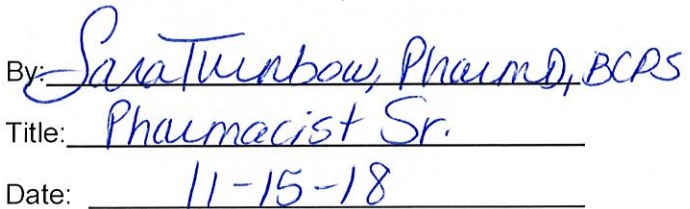 By: Sara Turnbow, PharmD, BCPS
Title: Pharmacist Sr.
Date: 11-15-18